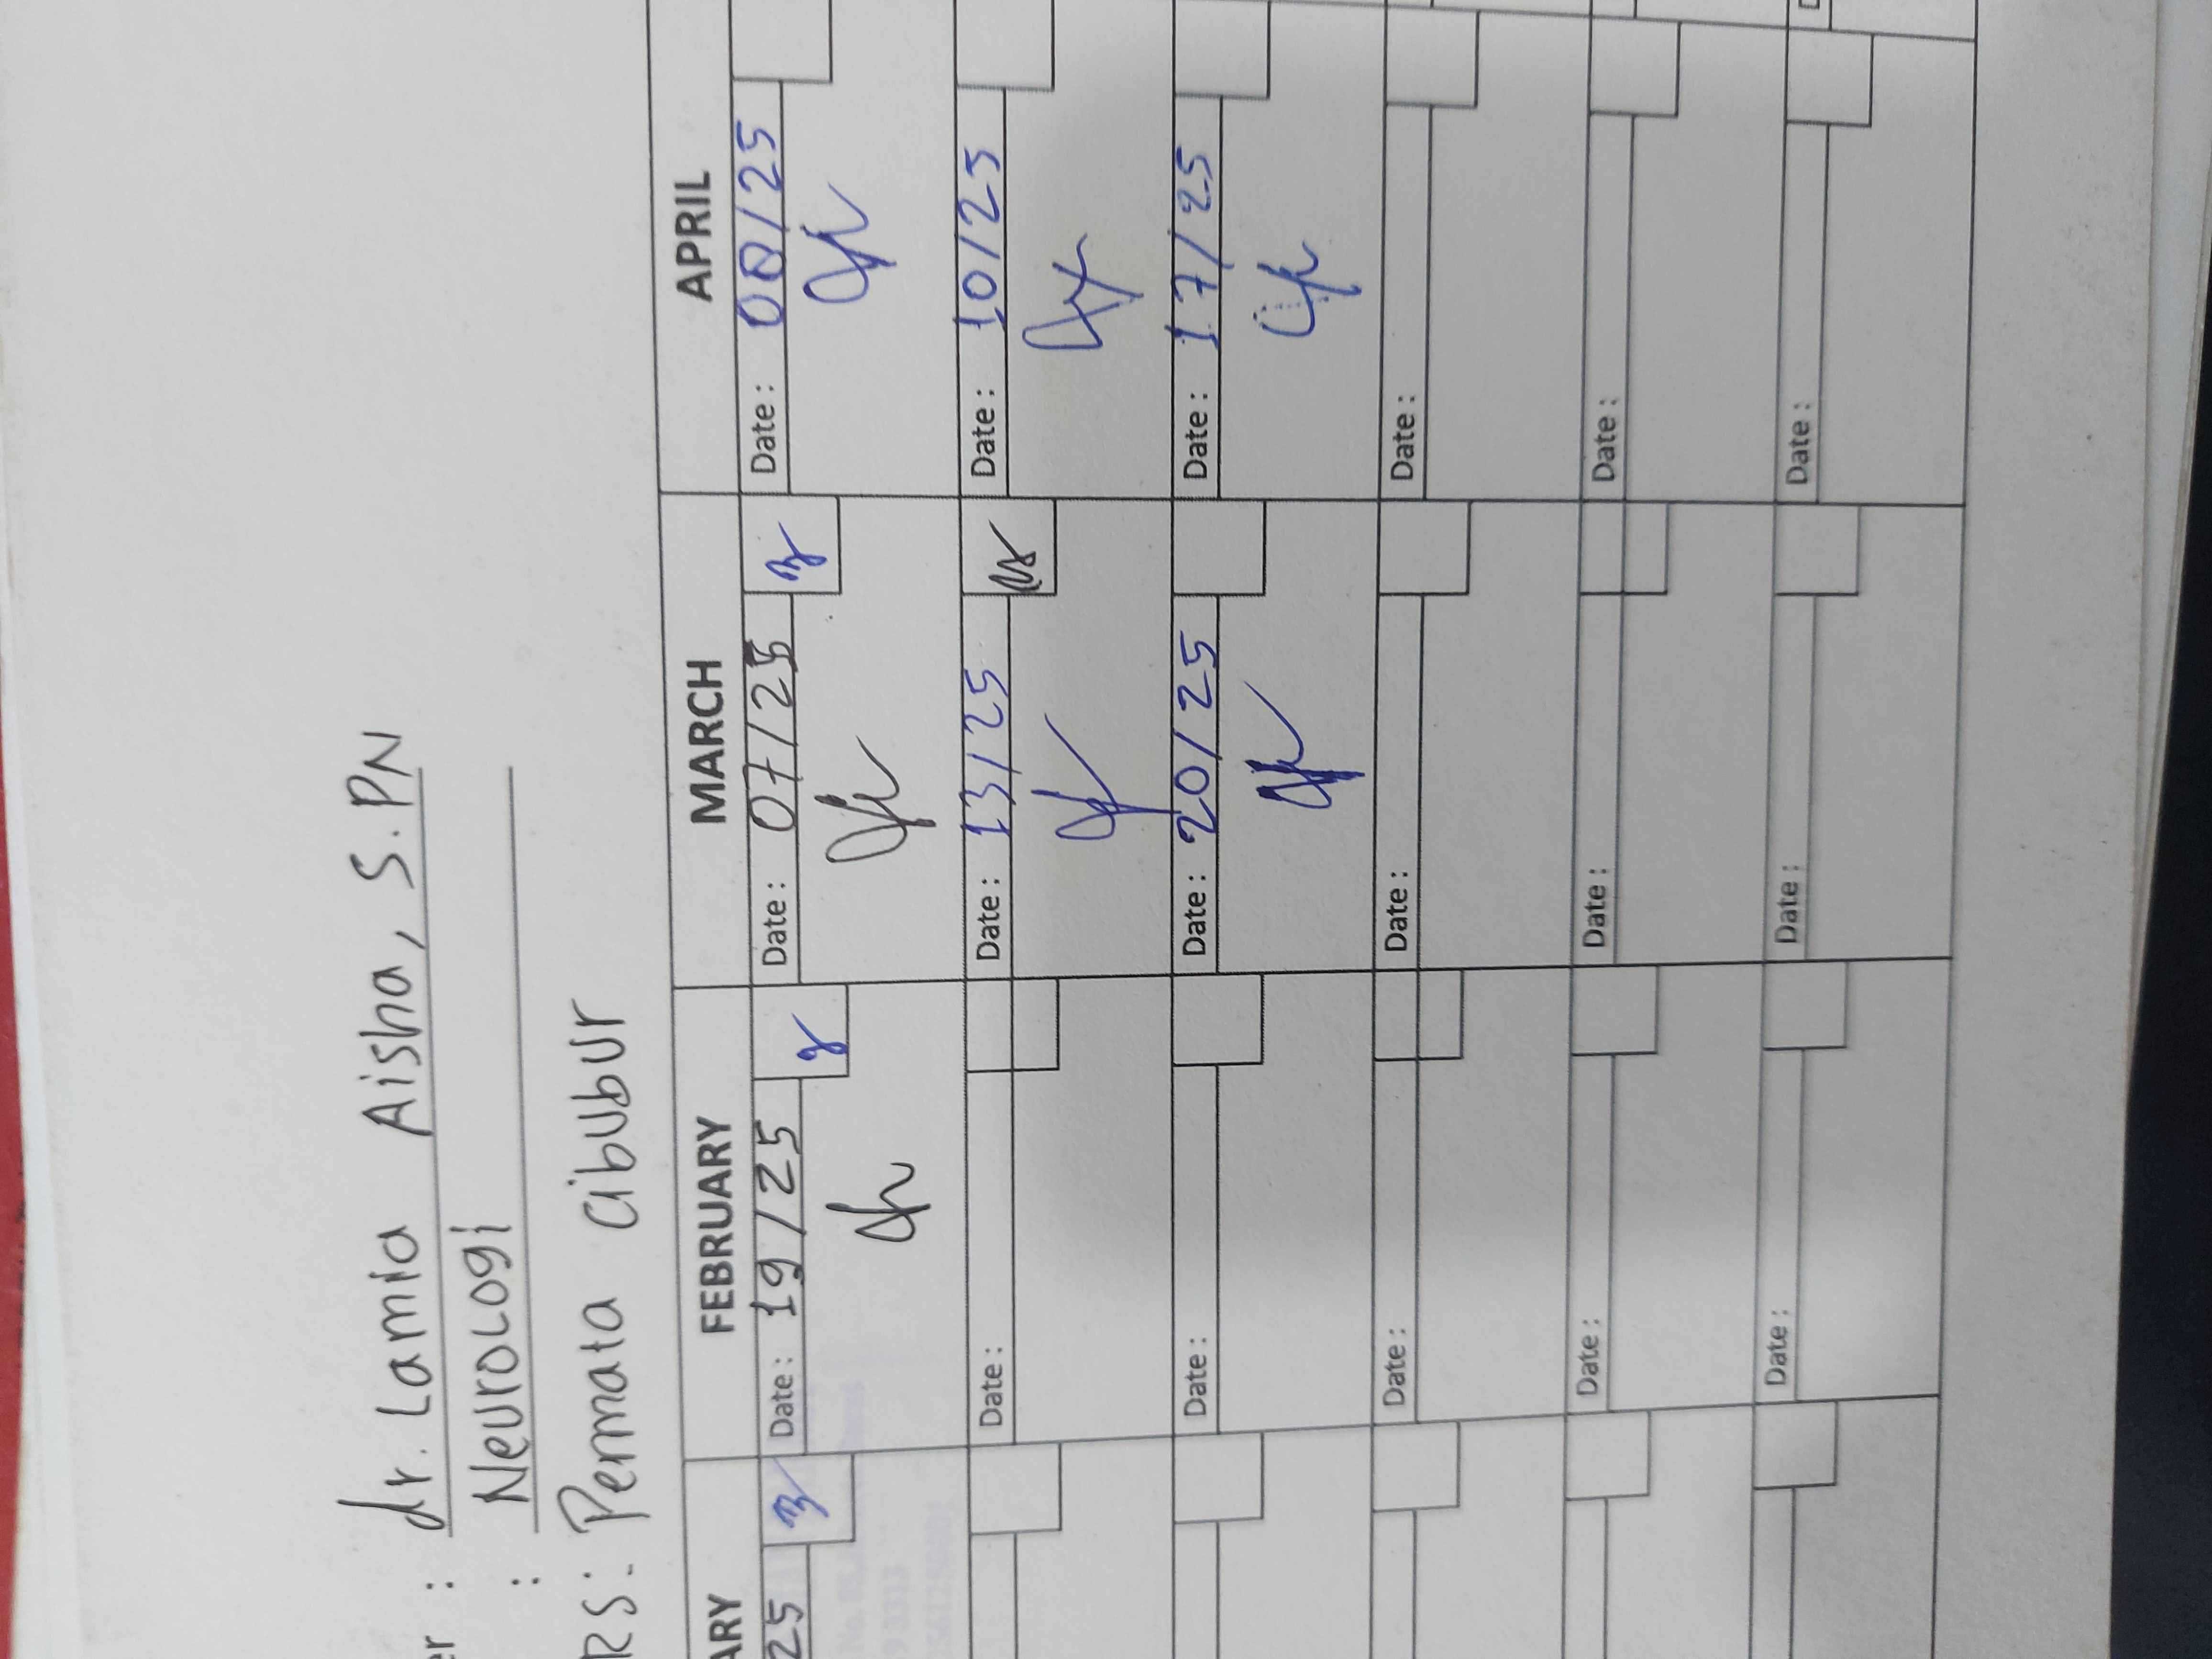 er : dr. Lamia Aisha, S.PN
: Neurologi
RS: Permata Cibubur
ARY FEBRUARY MARCH APRIL
25 Date : 19/25 Date : 07/25 Date : 08/25
Date : Date : 13/25 Date : 10/25
Date : Date : 20/25 Date : 17/25
Date : Date : Date :
Date : Date : Date :
Date : Date : Date :